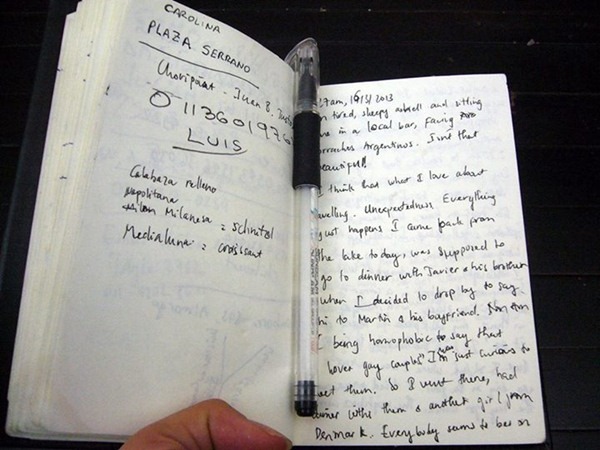 CAROLINA
PLAZA SERRANO
Choripan. Juan B.
011360197
LUIS
Calabaza relleno
napolitana
Milanesa = schnitzel
Medialuna = croissant
27am, 16/3/2013
tired, sleepy and sitting
in a local bar, facing
Argentinos. Isn't that
beautiful!
think that what I love about
travelling. Unexpectedness. Everything
just happens I came back from
the lake today, was supposed to
go to dinner with Javier & his brother
when I decided to drop by to say
hi to Martin & his boyfriend.
I being homophobic to say that
gay couples I was just curious to
meet them. So I went there, had
dinner with them & another girl from
Denmark. Everybody seems to be on